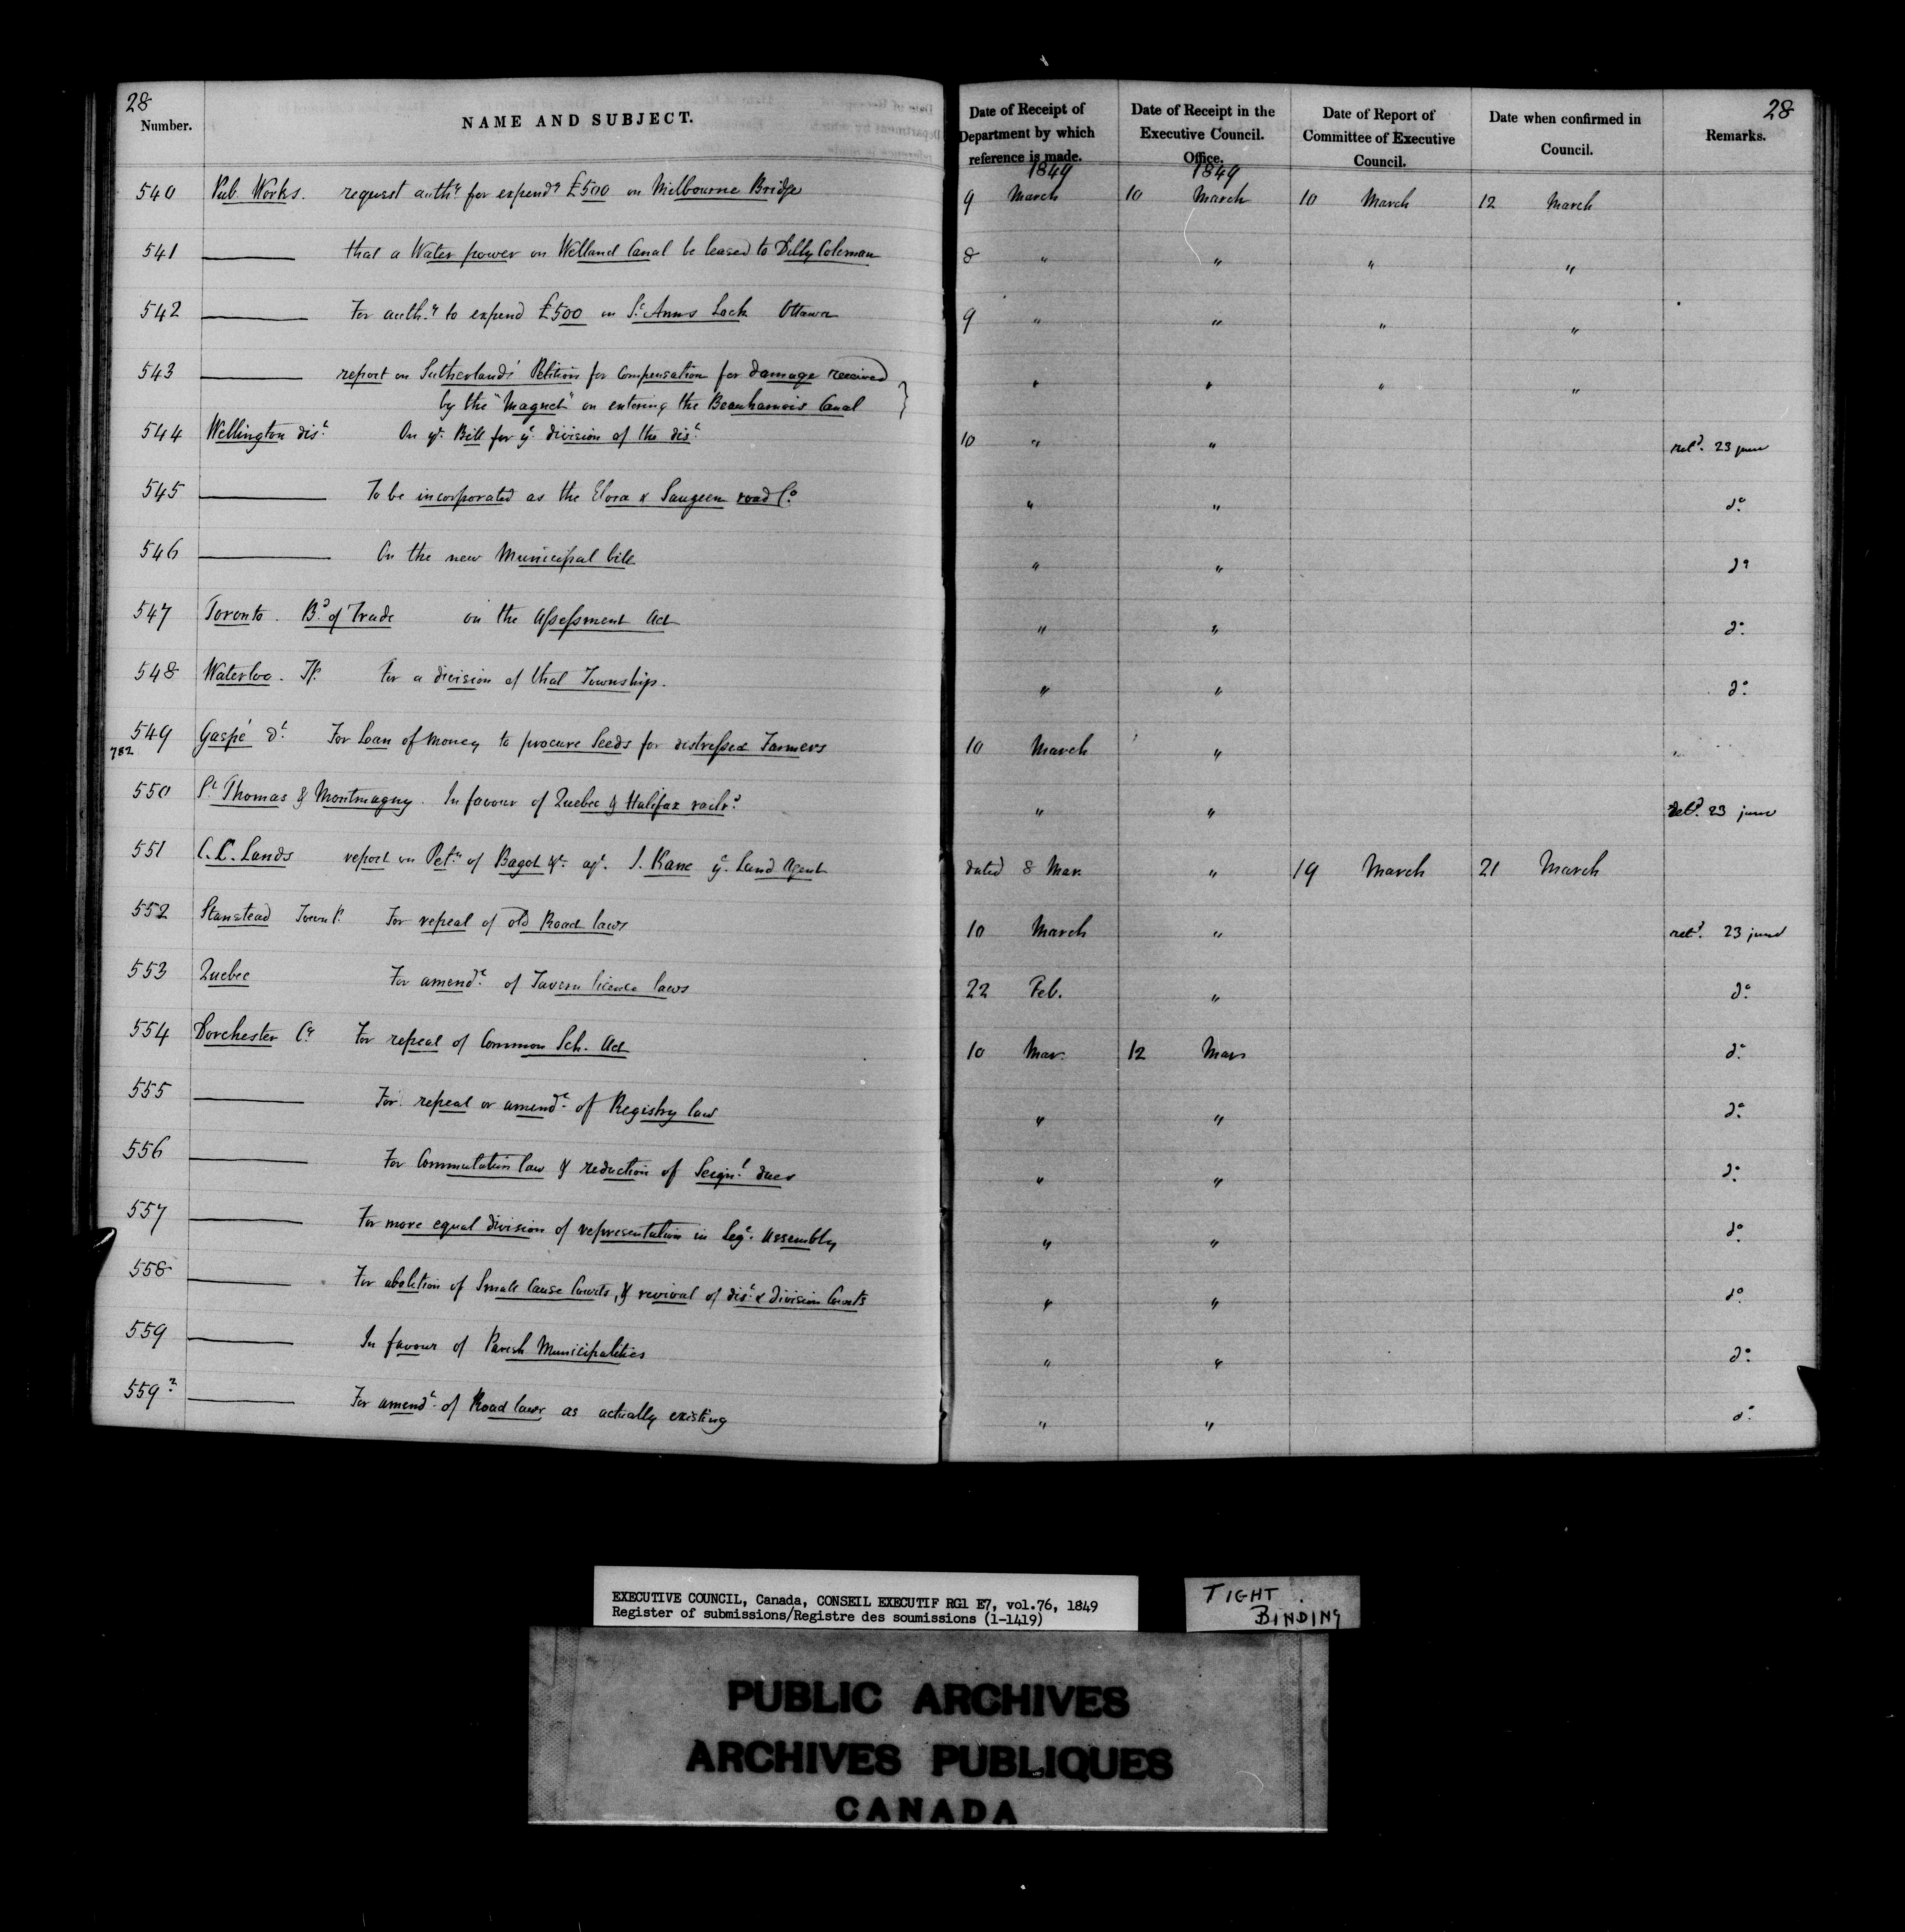 28
Number.
NAME AND SUBJECT.
Date of Receipt of Department by which reference is made.
Date of Receipt in the Executive Council. Office.
Date of Report of Committee of Executive Council.
Date when confirmed in Council.
Remarks.
28
1849 1849
540 Pub. Works. request authy for expendg £500 on Melbourne Bridge 9 March 10 March 10 March 12 March
541 —— that a Water power on Welland Canal be leased to Dilly Coleman 8 " " " "
542 —— For authy to expend £500 on St. Anns Lock Ottawa 9 " " " "
543 —— report on Sutherlands' Petition for Compensation for damage received " " " "
by the "Magnet" on entering the Beauharnois Canal }
544 Wellington dist. On yt. Bill for ye. division of the dist. 10 " " retd. 23 june
545 —— To be incorporated as the Elora & Saugeen road Co. " " do.
546 —— On the new Municipal bill " " do
547 Toronto. Bd. of Trade on the Assessment Act " " do.
548 Waterloo. Tp. For a division of that Township. " " do.
549 Gaspé dt. For Loan of Money to procure Seeds for distressed Farmers 10 March "
782
550 St. Thomas & Montmagny. In favour of Quebec & Halifax railrd. " " retd. 23 june
551 C.C. Lands report on Petn of Bagot &c. agt. J. Kane ye. Land Agent dated 8 Mar. " 19 March 21 March
552 Stanstead Townp. For repeal of old Road laws 10 March " retd. 23 june
553 Quebec For amendt. of Tavern licence laws 22 Feb. " do.
554 Dorchester Cy For repeal of Common Sch. Act 10 Mar. 12 Mar. do.
555 —— For repeal or amendt. of Registry law " " do.
556 —— For Commutation law & reduction of Seignl. dues " " do.
557 —— For more equal division of representation in Lege. Assembly " " do.
558 —— For abolition of Small Cause Courts, & revival of dist. & division Courts " " do.
559 —— In favour of Parish Municipalities " " do.
559 2 —— For amendt. of Road laws as actually existing " " do.
EXECUTIVE COUNCIL, Canada, CONSEIL EXECUTIF RG1 E7, vol.76, 1849
Register of submissions/Registre des soumissions (1-1419)
TIGHT
BINDING
PUBLIC ARCHIVES
ARCHIVES PUBLIQUES
CANADA